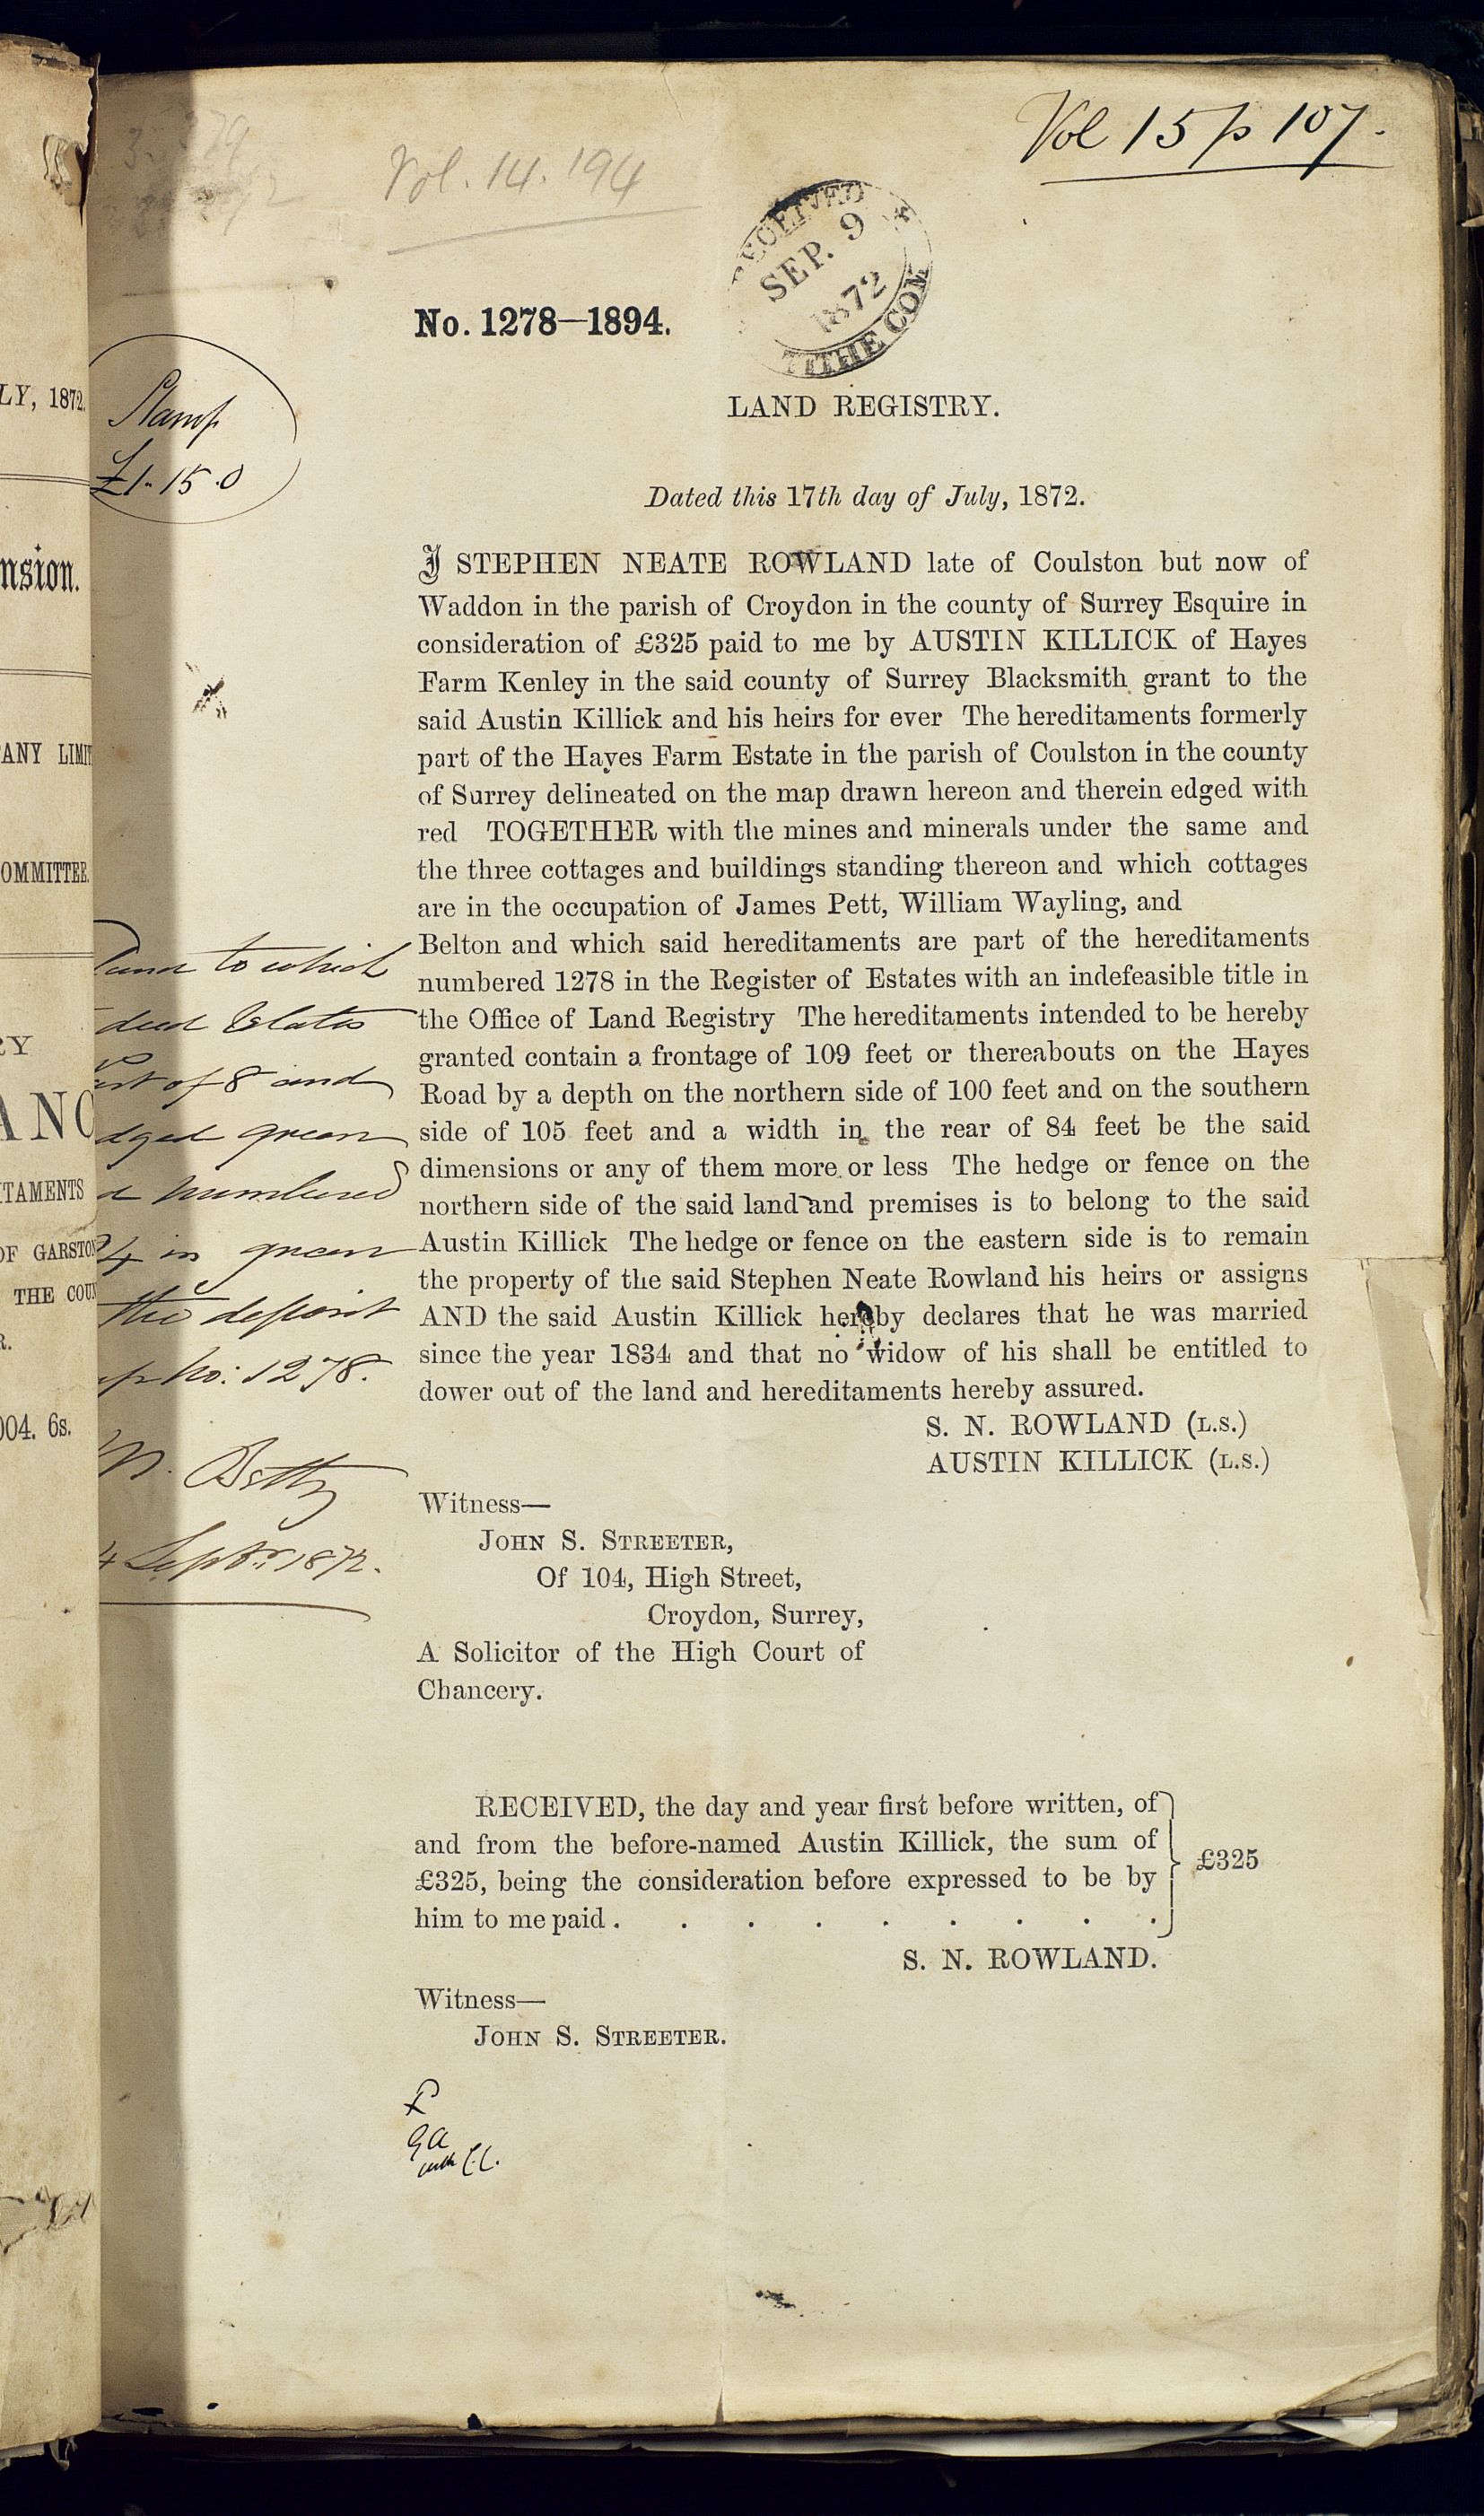 Vol 15 p 107.
Vol. 14. 194
RECEIVED
SEP. 9
1872
TITHE COM
No. 1278—1894.
LAND REGISTRY.
Stamp
£1.. 15.0
Dated this 17th day of July, 1872.
I STEPHEN NEATE ROWLAND late of Coulston but now of
Waddon in the parish of Croydon in the county of Surrey Esquire in
consideration of £325 paid to me by AUSTIN KILLICK of Hayes
Farm Kenley in the said county of Surrey Blacksmith grant to the
said Austin Killick and his heirs for ever The hereditaments formerly
part of the Hayes Farm Estate in the parish of Coulston in the county
of Surrey delineated on the map drawn hereon and therein edged with
red TOGETHER with the mines and minerals under the same and
the three cottages and buildings standing thereon and which cottages
are in the occupation of James Pett, William Wayling, and
Belton and which said hereditaments are part of the hereditaments
numbered 1278 in the Register of Estates with an indefeasible title in
the Office of Land Registry The hereditaments intended to be hereby
granted contain a frontage of 109 feet or thereabouts on the Hayes
Road by a depth on the northern side of 100 feet and on the southern
side of 105 feet and a width in the rear of 84 feet be the said
dimensions or any of them more or less The hedge or fence on the
northern side of the said land and premises is to belong to the said
Austin Killick The hedge or fence on the eastern side is to remain
the property of the said Stephen Neate Rowland his heirs or assigns
AND the said Austin Killick hereby declares that he was married
since the year 1834 and that no widow of his shall be entitled to
dower out of the land and hereditaments hereby assured.
S. N. ROWLAND (L.S.)
AUSTIN KILLICK (L.S.)
Witness—
JOHN S. STREETER,
Of 104, High Street,
Croydon, Surrey,
A Solicitor of the High Court of
Chancery.
to which
deed relates
of 8 and
green
numbered
4 in green
the deposit
No: 1278.
4 Septr. 1872.
RECEIVED, the day and year first before written, of
and from the before-named Austin Killick, the sum of
£325, being the consideration before expressed to be by
him to me paid . . . . . . . . .
£325
S. N. ROWLAND.
Witness—
JOHN S. STREETER.
LY, 1872.
nsion.
ANY LIMIT
OMMITTEE.
RY
ANC
ITAMENTS
OF GARSTON
THE COUN
R.
004. 6s.